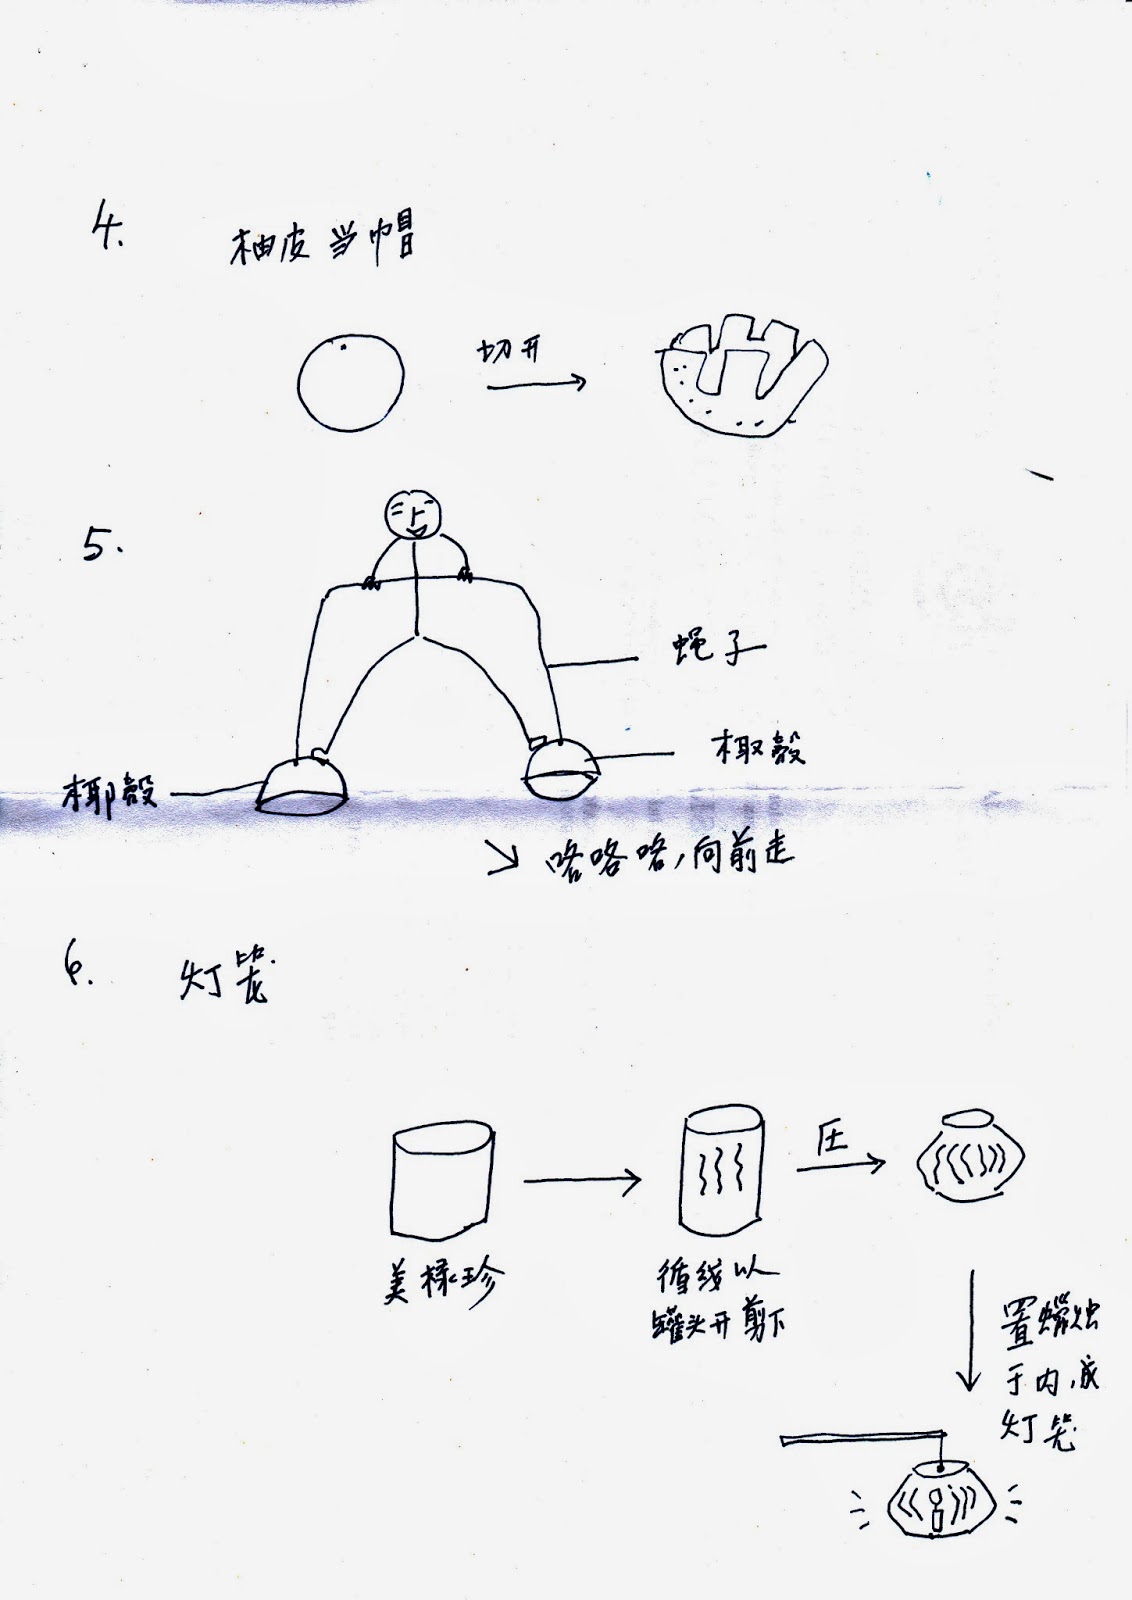 4.
柚皮当帽
切开
5.
绳子
椰殼
椰殼
咯咯咯,向前走
6.
灯笼
压
美禄珍
循线以
罐头开剪下
置蠟烛
于内,成
灯笼